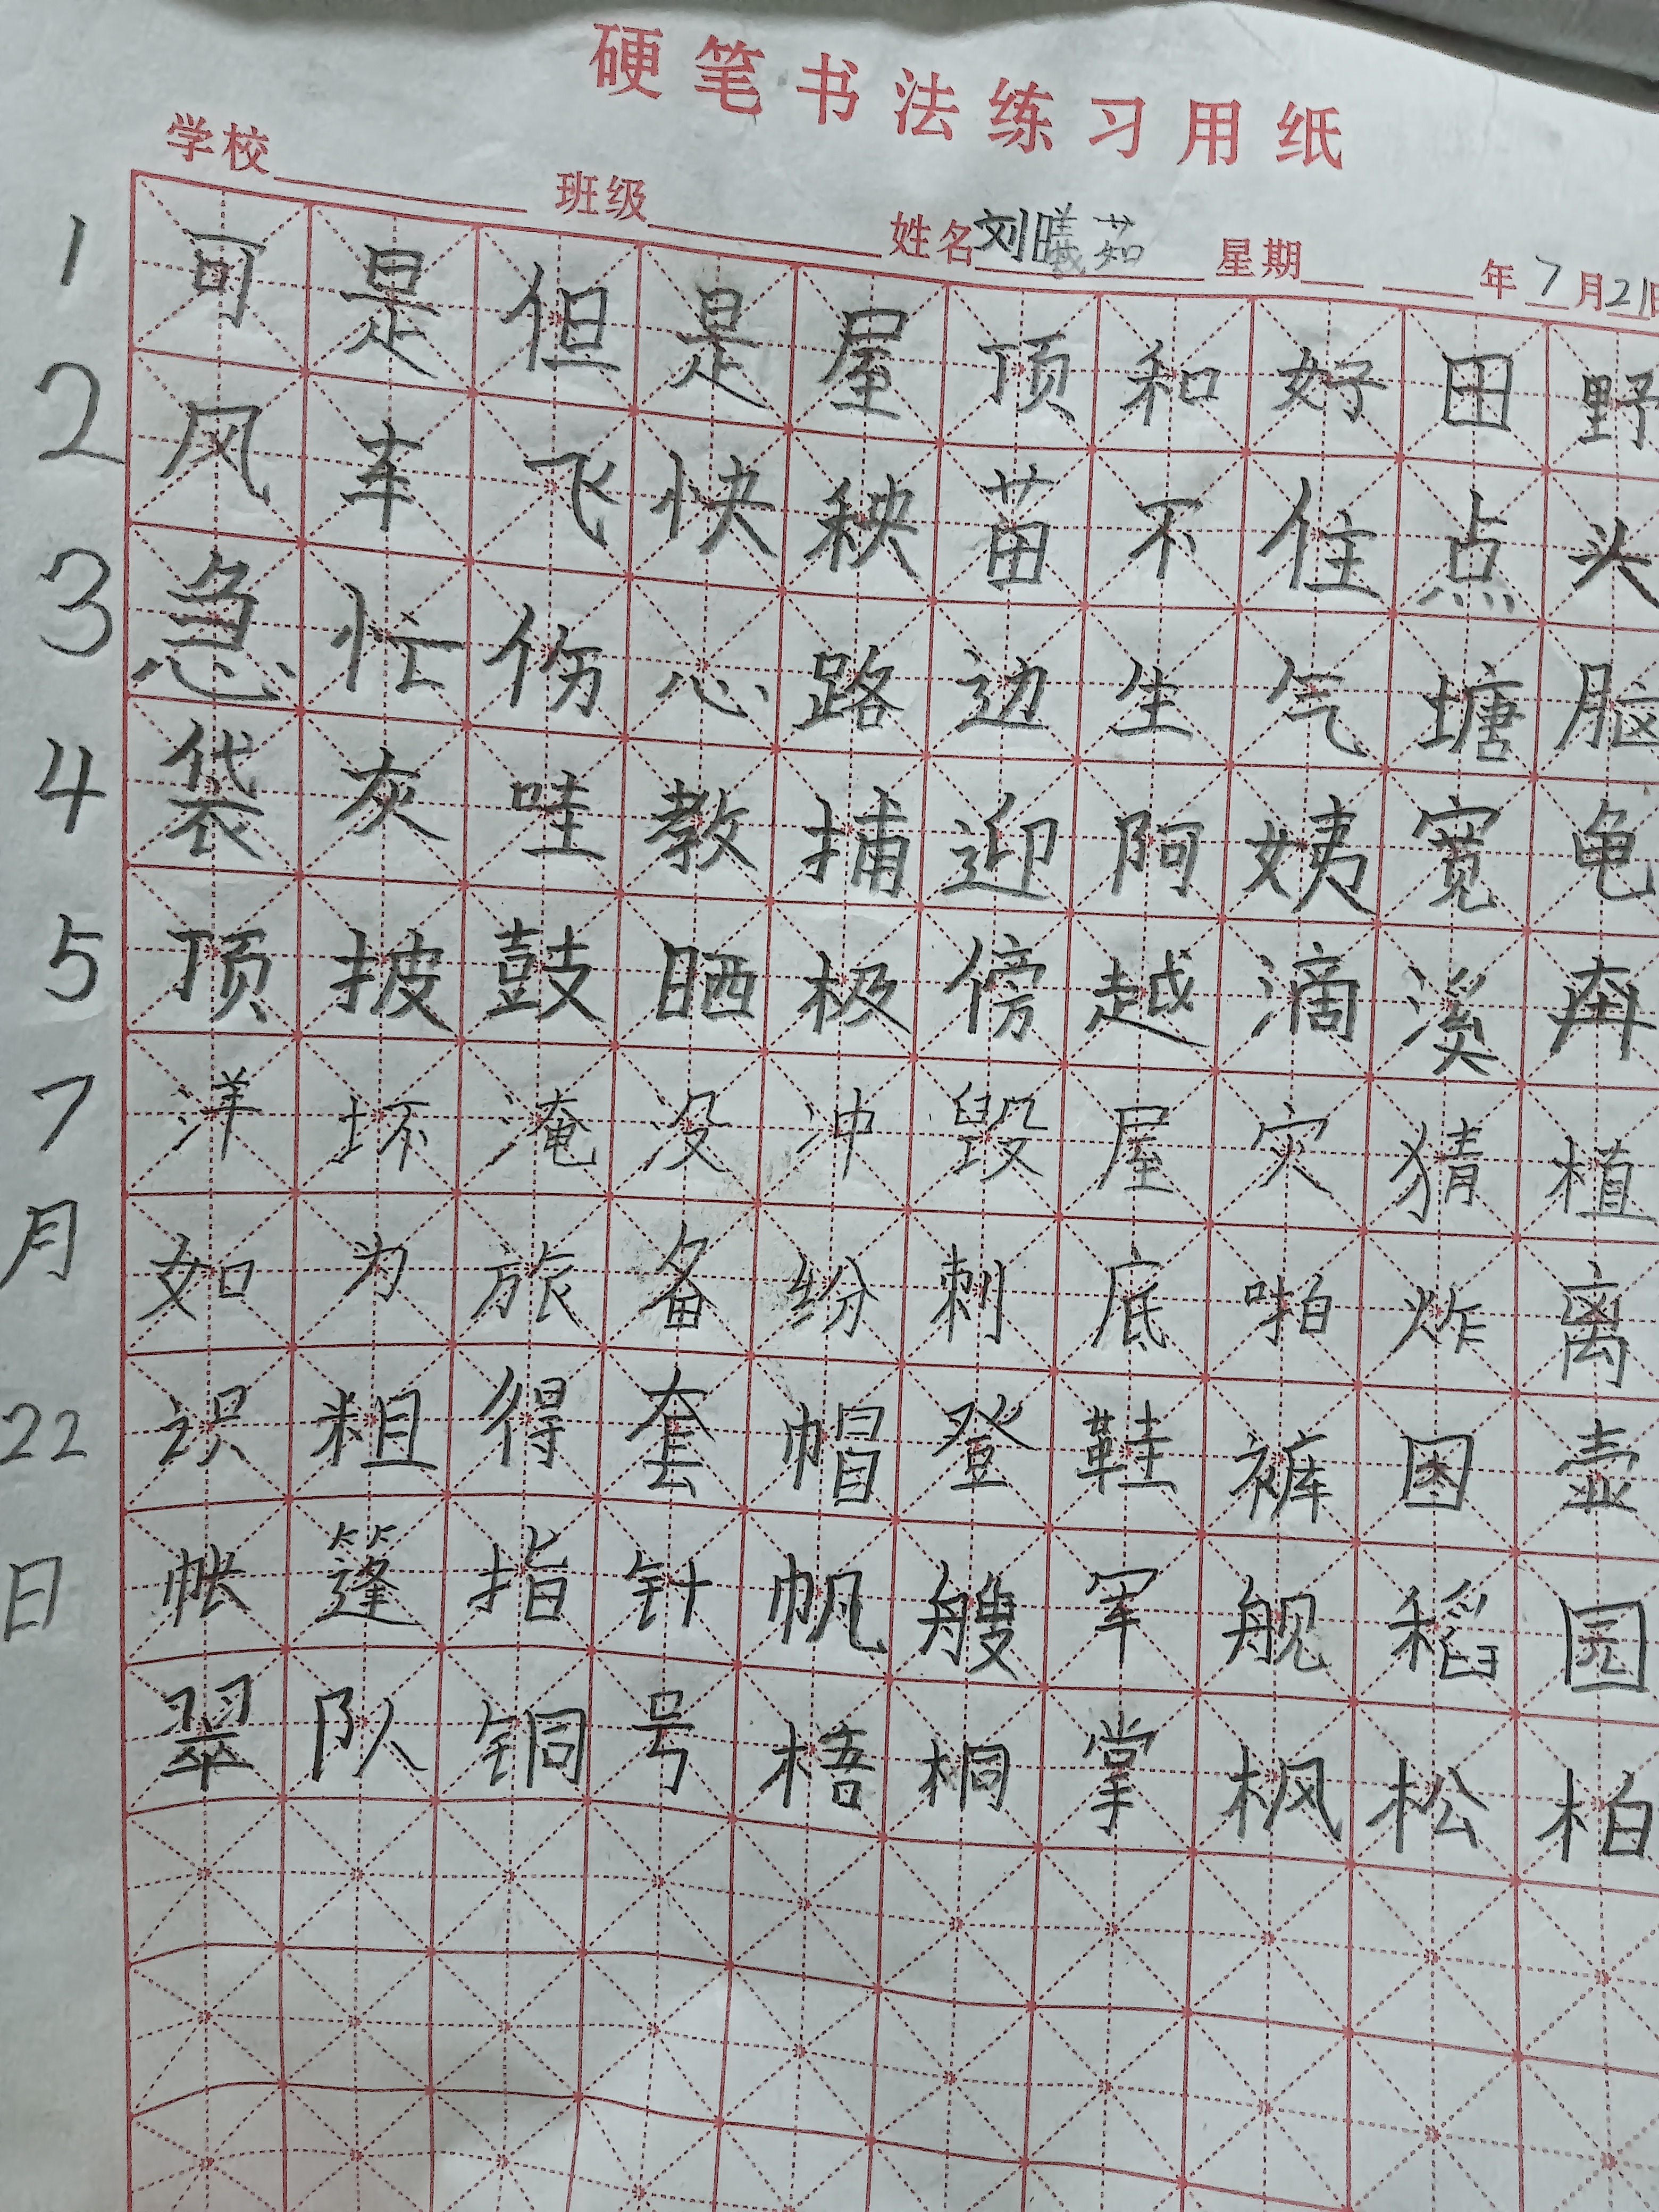 硬笔书法练习用纸
学校 班级 姓名刘曦茹 星期 年7月21日
1 可是但是屋顶和好田野
2 风车飞快秧苗不住点头
3 急忙伤心路边生气塘脑
4 袋灰哇教捕迎阿姨宽龟
5 顶披鼓晒极傍越滴溪奔
7 洋坏淹没冲毁屋灾猜植
月 如为旅备纷刺底啪炸离
22 识粗得套帽登鞋裤图壶
日 帐篷指针帆艘军舰稻园
翠队铜号梧桐掌枫松柏